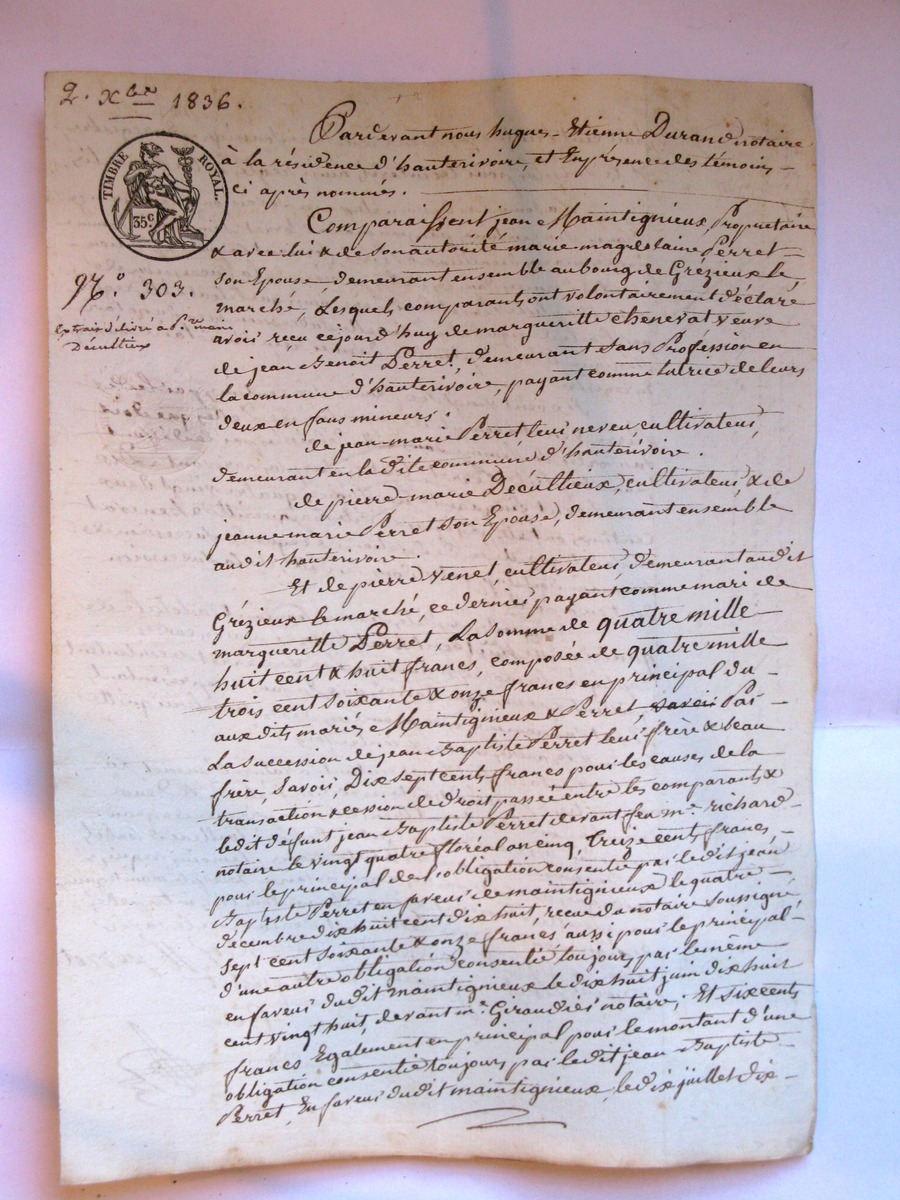 2. Xbre 1836.
TIMBRE ROYAL.
35c
No. 303.
Extrait délivré à P.re marie
Décultieux
Pardevant nous hugues-Etienne Durand notaire
à la résidence d'hauterivoire, et En présence des témoins
ci après nommés.
Comparaissent jean Maintignieux Proprietaire
& avec lui & de son autorité marie magdelaine Perret
son Epouse, demeurant ensemble au bourg de Grézieux le
marché, Lesquels comparants ont volontairement déclaré
avoir reçu cejourd'huy de margueritte chenevat veuve
de jean Benoit Perret, demeurant sans Profession en
la commune d'hauterivoire, payant comme tutrice de leurs
deux enfans mineurs.
de jean-marie Perret leur neveu cultivateur,
demeurant en la dite commune d'hauterivoire.
de pierre-marie Décultieux, cultivateur & de
jeanne marie Perret son Epouse, demeurant ensemble
audit hauterivoire.
Et de pierre Venet, cultivateur, demeurant audit
Grézieux le marché, ce dernier payant comme mari de
margueritte Perret, La somme de quatre mille
huit cent & huit francs, composée de quatre mille
trois cent soixante & onze francs en principal du
aux dits mariés Maintignieux & Perret, Par
La succession de jean Baptiste Perret leur frère & beau
frère, Savoir, Dix sept cents francs pour les causes de la
transaction & cession de droit passée entre les comparants &
ledit défunt jean Baptiste Perret devant feu me. richard
notaire le vingt quatre floréal an cinq, treize cents francs,
pour le principal de l'obligation consentie par le dit jean
Baptiste Perret en faveur de maintignieux le quatre
décembre dix huit cent dix huit, recue du notaire soussigné,
sept cent soixante & onze francs aussi pour le principal
d'une autre obligation consentie toujours par le même
en faveur du dit maintignieux le dix huit juin dix huit
cent vingt huit, devant me. Giraudier notaire; Et six cents
francs Egalement en principal pour le montant d'une
obligation consentie toujours par le dit jean Baptiste
Perret, En faveur du dit maintignieux, le dix juillet dix